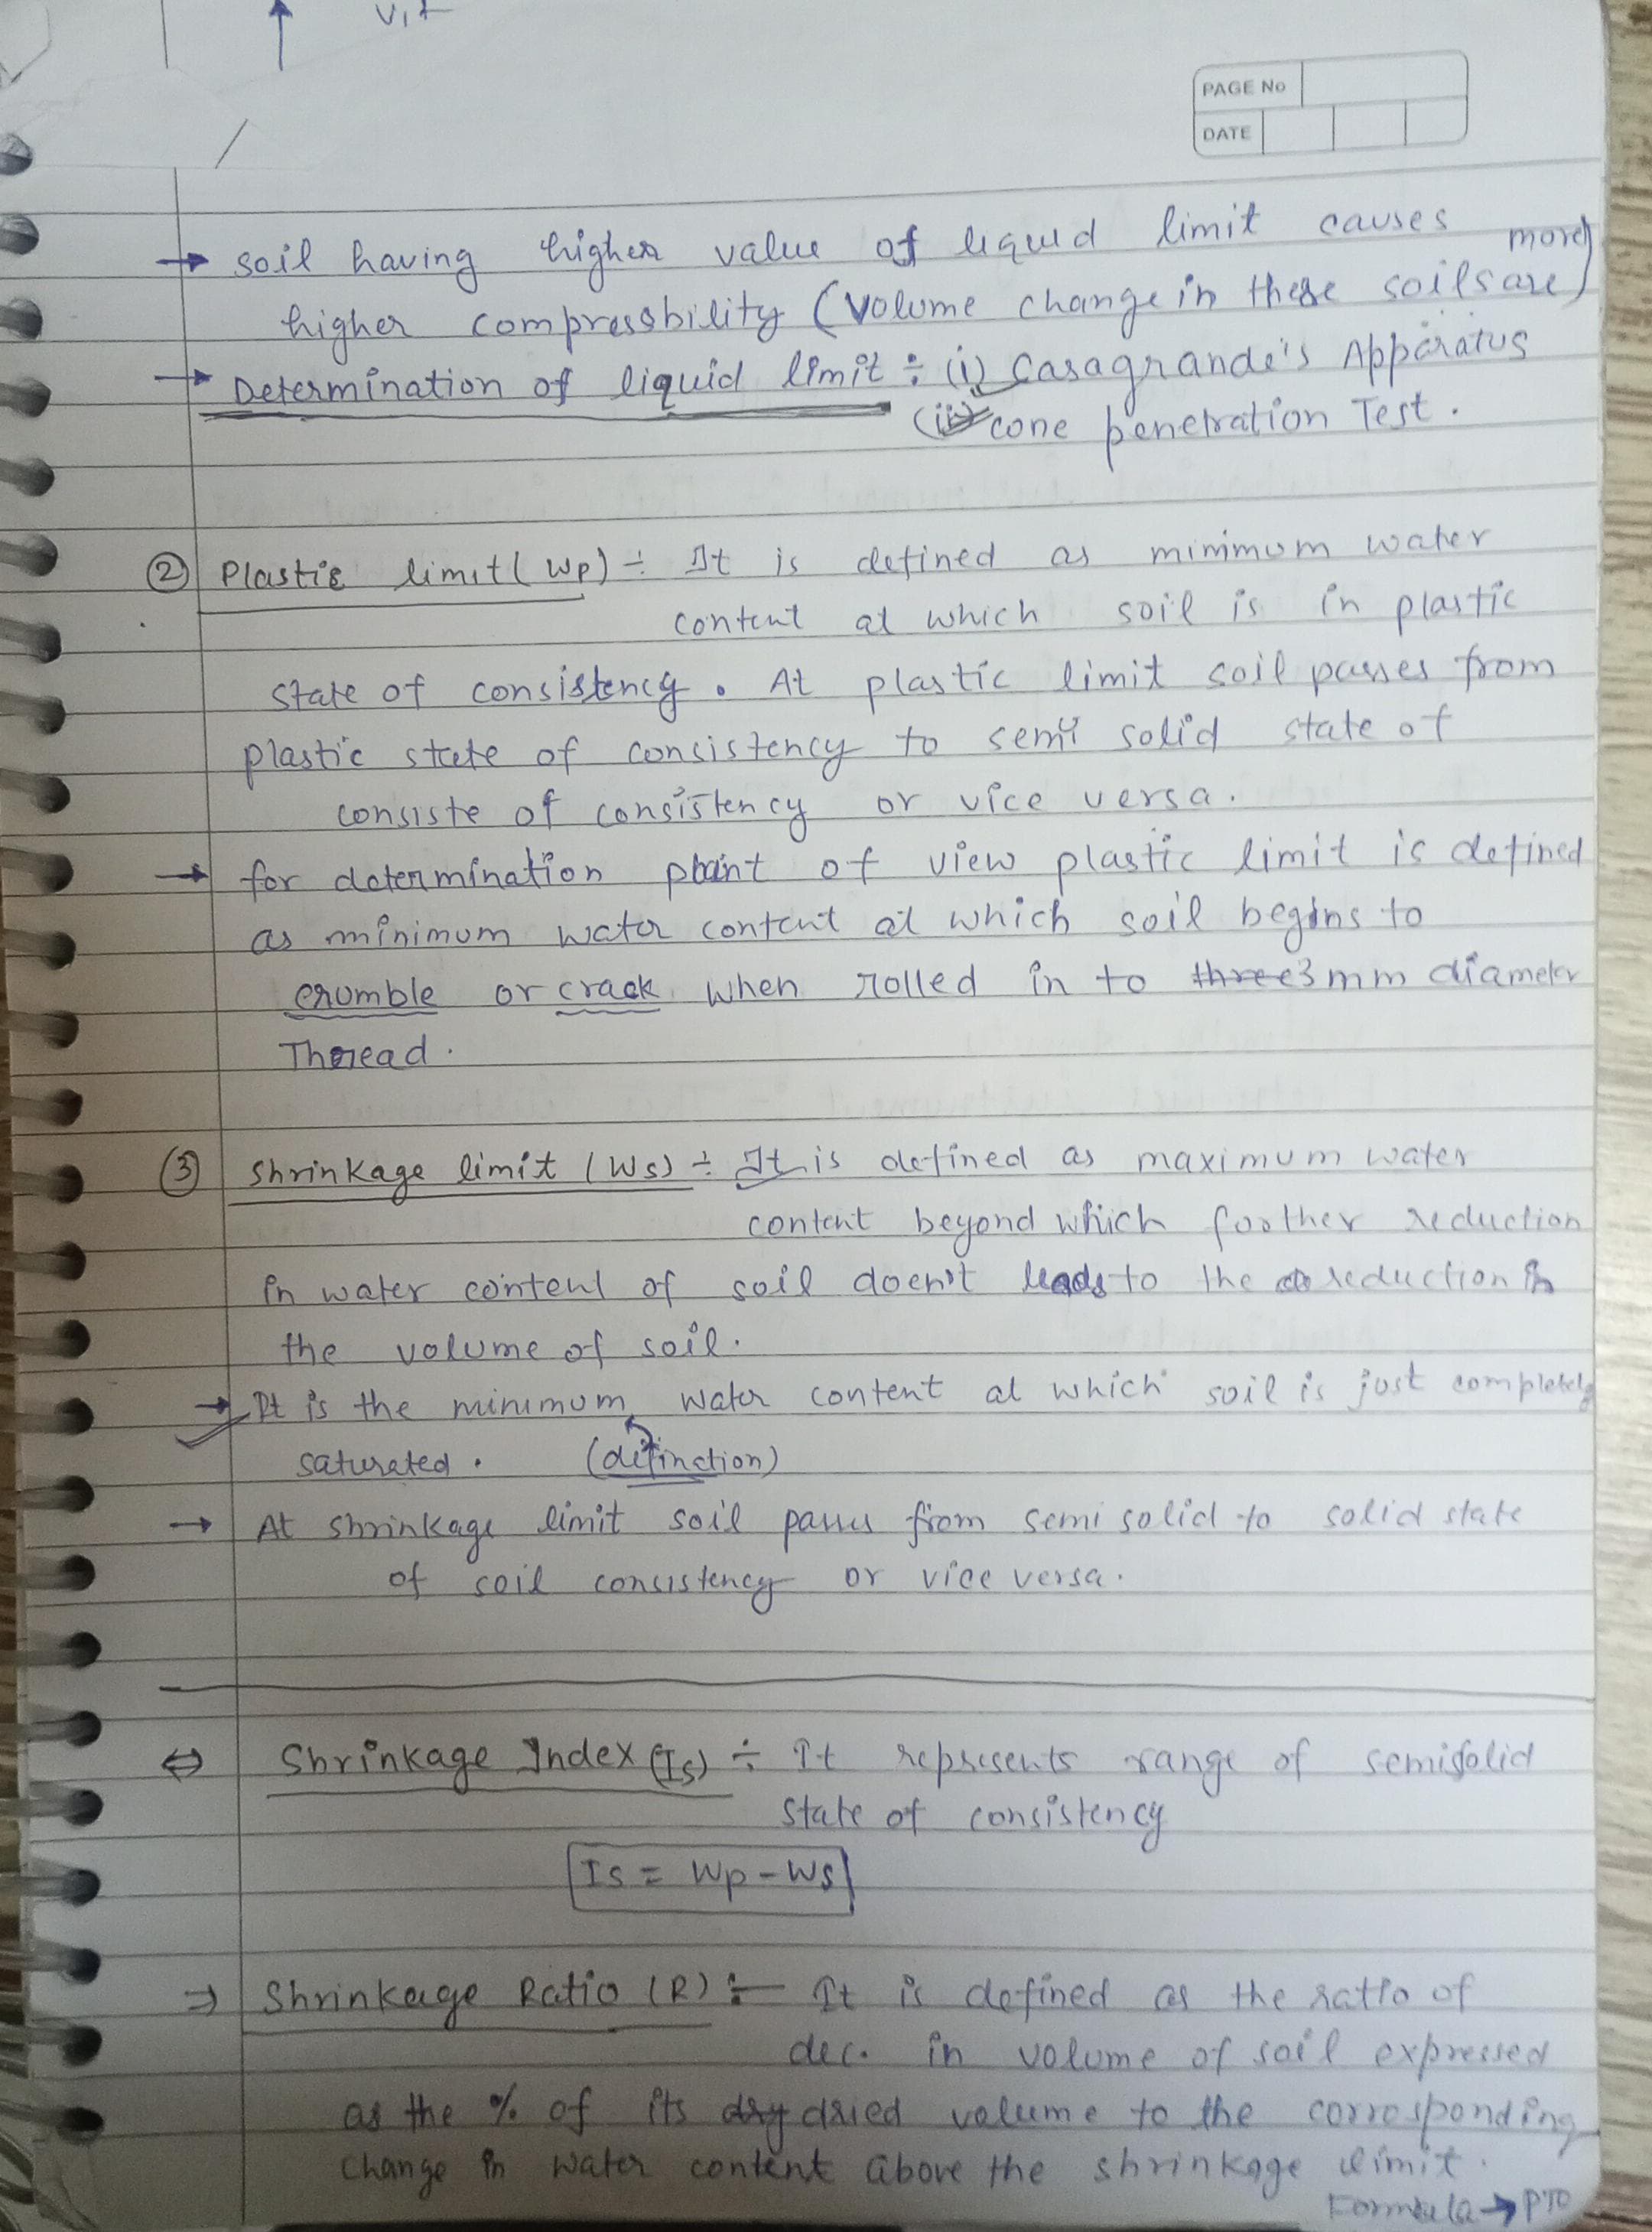 PAGE No
DATE
→ soil having higher value of liquid limit causes
higher compressbility (volume change in these soils are more)
→ Determination of liquid limit ÷ (i) Casagrande's Apparatus
(ii) cone penetration Test.
② Plastic limit (Wp) ÷ It is defined as minimum water
content at which soil is in plastic
state of consistency. At plastic limit soil passes from
plastic state of consistency to semi solid state of
consiste of consistency or vice versa.
→ for determination point of view plastic limit is defined
as minimum water content at which soil begins to
crumble or crack when rolled in to three 3 mm diameter
Thread.
③ Shrinkage limit (Ws) ÷ It is defined as maximum water
content beyond which further reduction
in water content of soil doen't leads to the reduction in
the volume of soil.
→ It is the minimum water content at which soil is just completely
saturated. (definction)
→ At shrinkage limit soil passes from semi solid to solid state
of soil consistency or vice versa.
⇔ Shrinkage Index (Is) ÷ It represents range of semisolid
state of consistency
Is = Wp - Ws
⇒ Shrinkage Ratio (R) :- It is defined as the ratio of
dec. in volume of soil expressed
as the % of its dry dried volume to the corresponding
change in water content above the shrinkage limit.
Formula → PTO